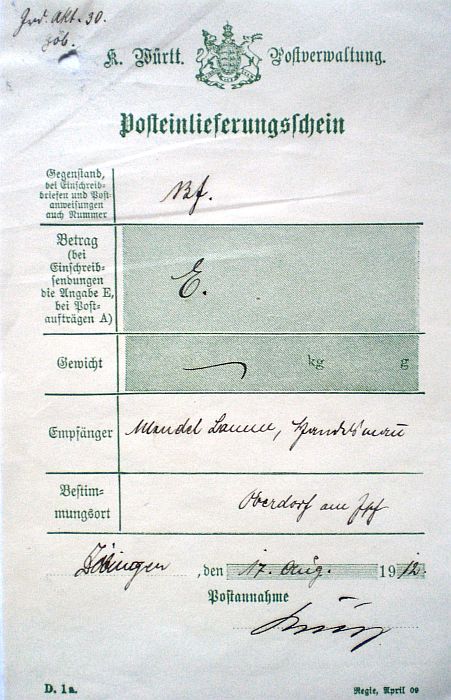 Akt. 30.
K. Württ. Postverwaltung.
Posteinlieferungsschein
Gegenstand,
bei Einschreib-
briefen und Post-
anweisungen
auch Nummer
Bf.
Betrag
(bei
Einschreib-
sendungen
die Angabe E,
bei Post-
aufträgen A)
E.
Gewicht
kg g
Empfänger
Mendel Lamm, Handelsmann
Bestim-
mungsort
Oberdorf am Ipf
, den 17. Aug. 1912.
Postannahme
D. 1a.
Regie, April 09